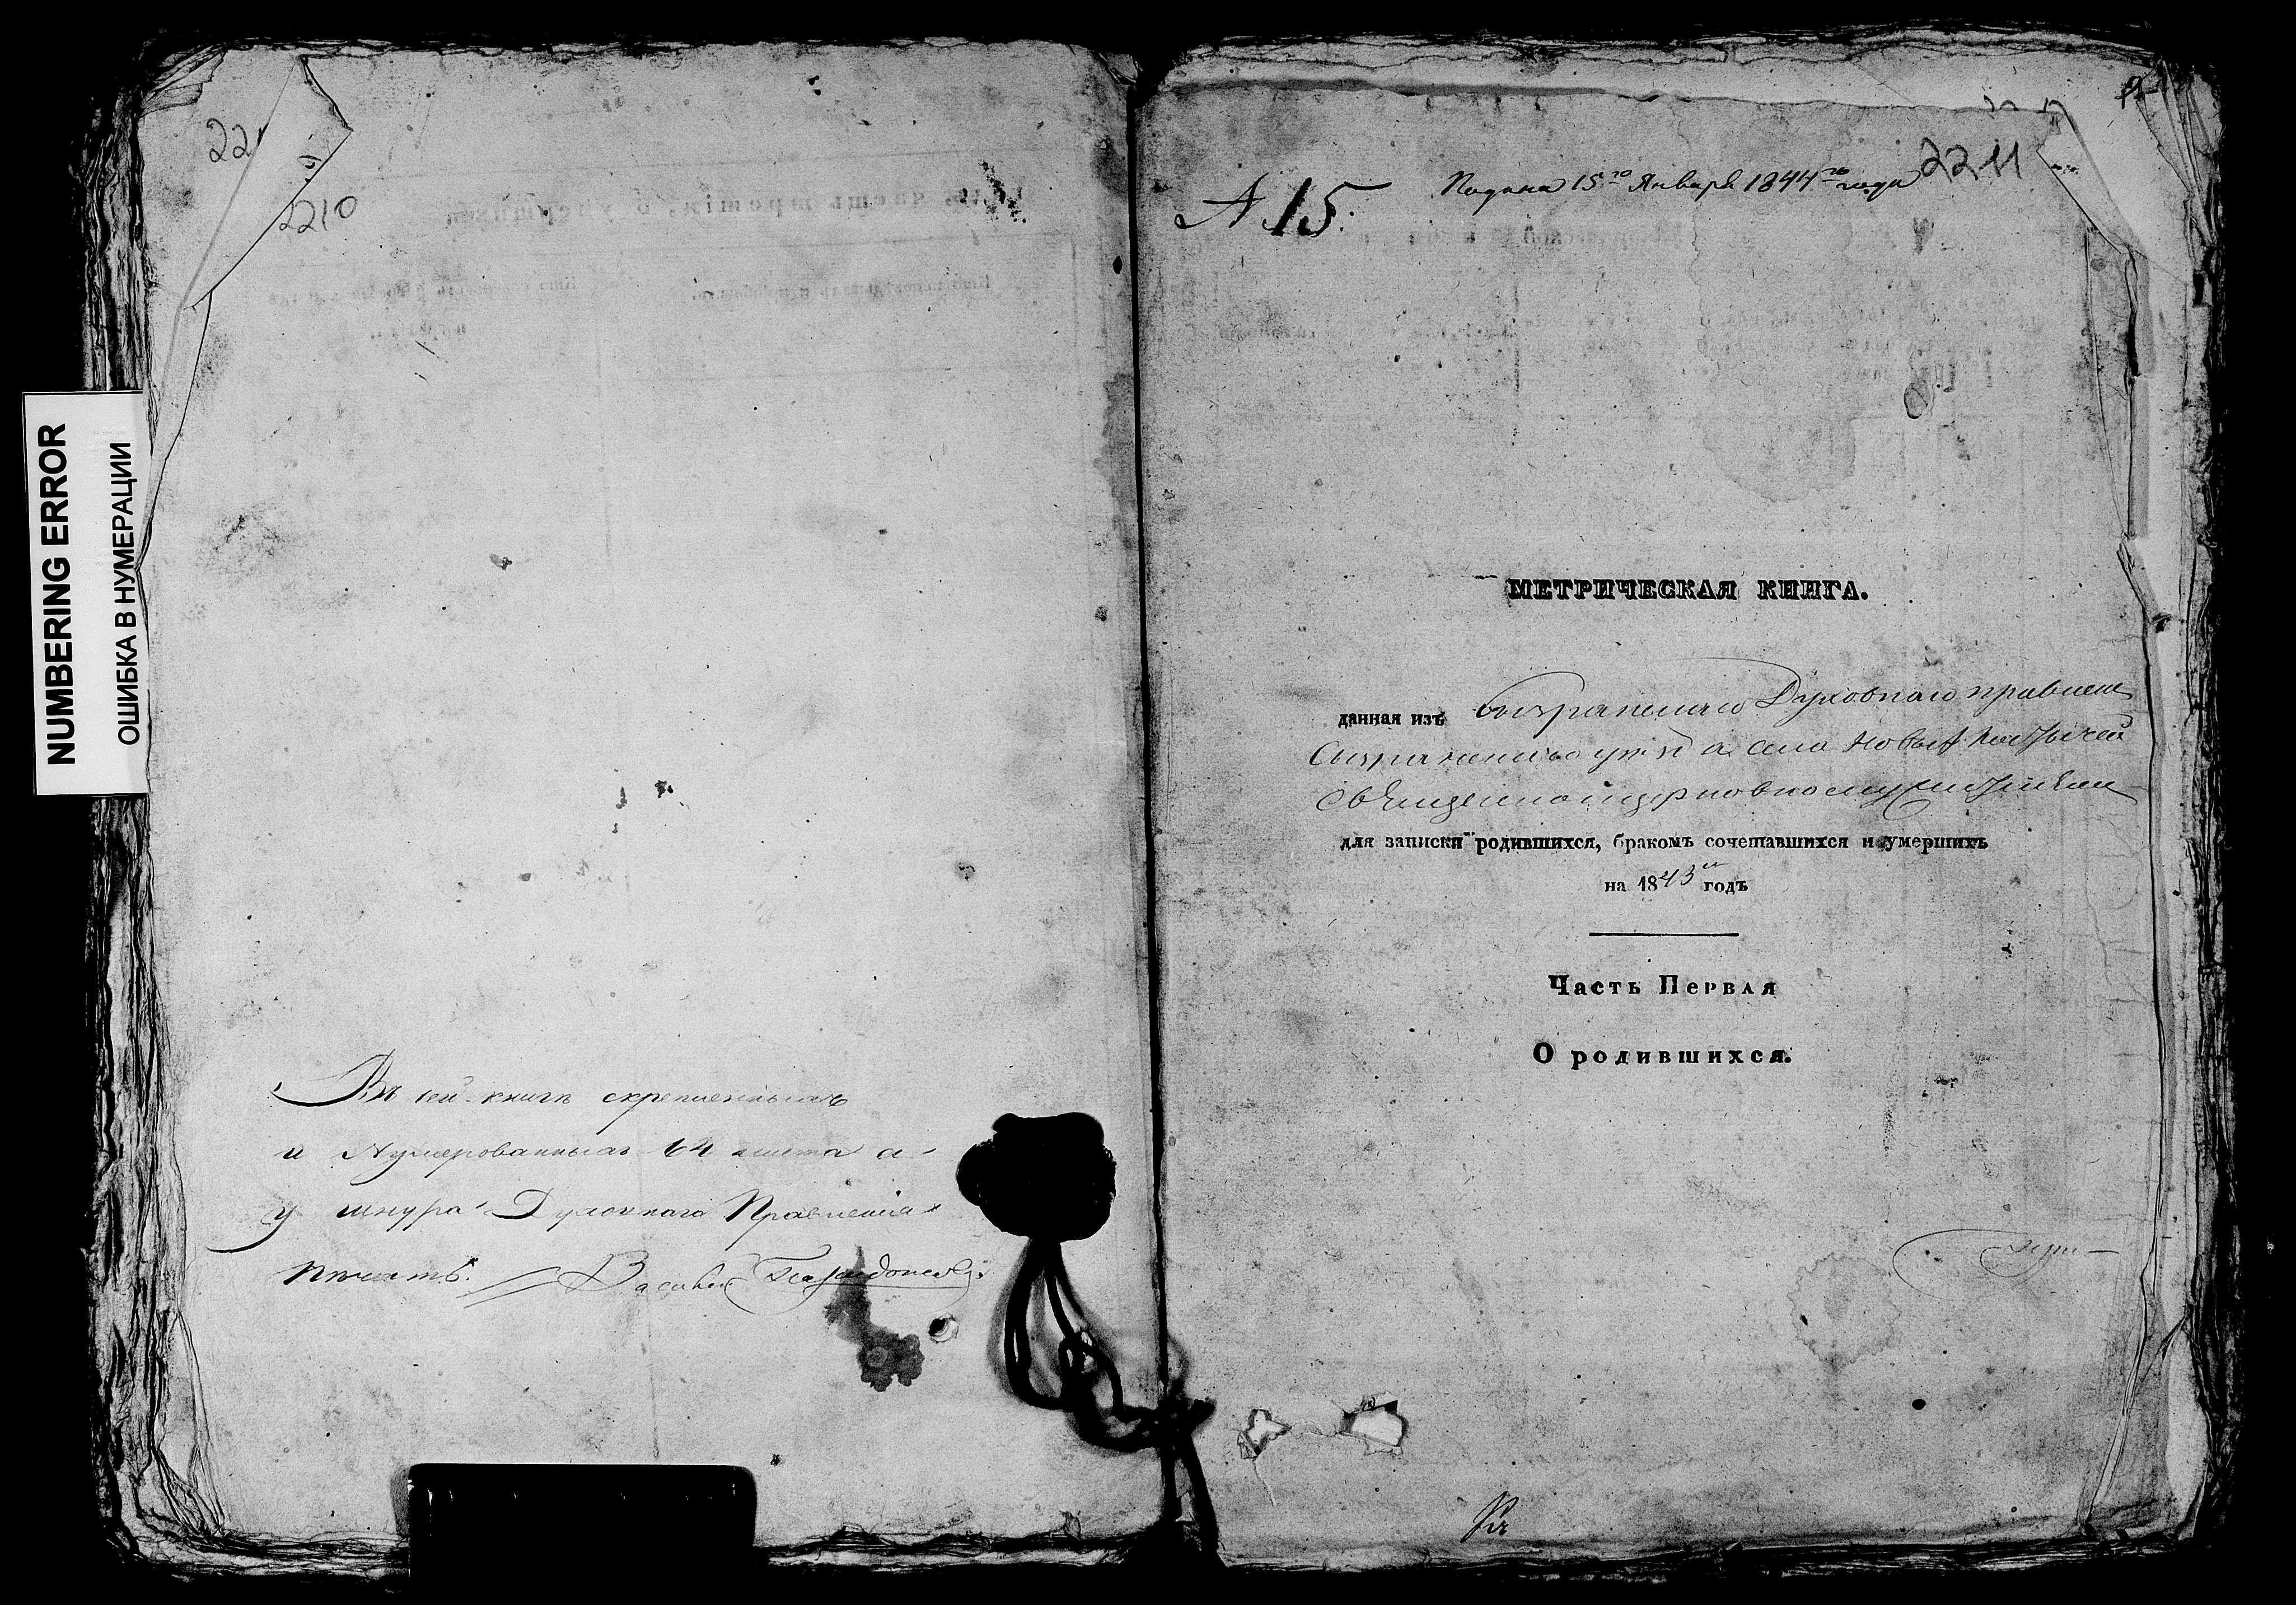 NUMBERING ERROR
ОШИБКА В НУМЕРАЦИИ
2210
Въ сей книгѣ скрепленныхъ
и Нумерованныхъ 64 листа а
у шнура Духовнаго Правленія
печать. Василій
А 15.
Подана 15го Января 1844го года
2211
МЕТРИЧЕСКАЯ КНИГА.
данная изъ Сызранскаго Духовнаго правлен
Сызранскаго уѣзда села Новыхъ Костычей
Священноцерковнослужителям
для записки родившихся, бракомъ сочетавшихся и умершихъ
на 1843й годъ
Часть Первая
О родившихся.